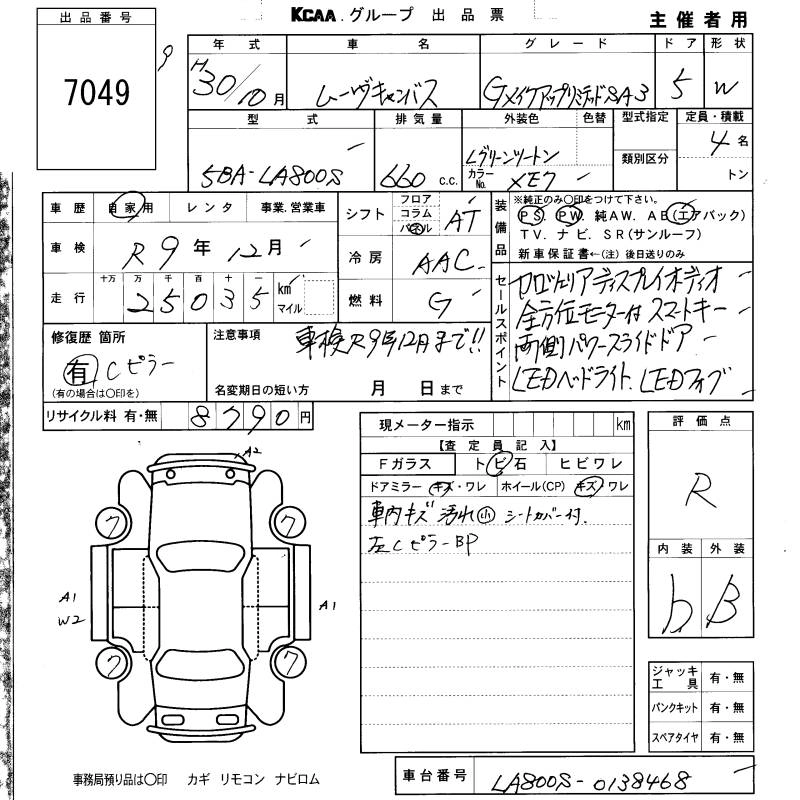 出品番号
7049
KCAA.グループ 出品票
主催者用
年式 車名 グレード ドア 形状
H30/10月 ムーヴキャンバス GメイクアップリミテッドSA3 5 W
型式 排気量 外装色 色替 型式指定 定員・積載
5BA-LA800S 660 c.c. Lグリーンツートン 4名
カラーNo. XE7 類別区分 トン
車歴 自家用 レンタ 事業.営業車
車検 R9年12月
走行 十万 万 千 百 十 一
25035 km マイル
シフト フロア コラム パネル AT
冷房 AAC
燃料 G
装備品 ※純正のみ〇印をつけて下さい。
PS. PW. 純AW. AB(エアバック)
TV. ナビ. SR(サンルーフ)
新車保証書←(注)後日送りのみ
セールスポイント
カロッツェリアディスプレイオーディオ
全方位モニター付 スマートキー
両側パワースライドドア
LEDヘッドライト. LEDフォグ
修復歴 箇所
有 Cピラー
(有の場合は〇印を)
注意事項 車検R9年12月まで!!
名変期日の短い方 月 日まで
リサイクル料 有・無 8790円
現メーター指示 km
【査定員記入】
Fガラス トビ石 ヒビワレ
ドアミラー キズ・ワレ ホイール(CP) キズ/ワレ
車内キズ 汚れ小 シートカバー付.
左Cピラー BP
評価点
R
内装 外装
b B
ジャッキ工具 有・無
パンクキット 有・無
スペアタイヤ 有・無
A2
ワ ワ
A1
W2
A1
ワ ワ
事務局預り品は〇印 カギ リモコン ナビロム
車台番号 LA800S-0138468